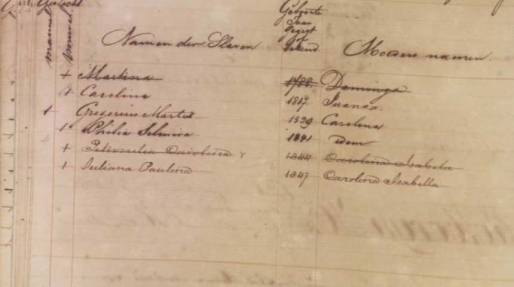 Geslacht
mannel
vrouwel
Namen der Slaven
Geboorte Jaar
Moeders namen
+ Martina 1788 Dominga
Carolina 1817 Juana
+ Gregorius Martis 1839 Carolina
Philis 1841 Dem
+ Carolina 1844 Carolina Isabela
+ Juliana Paulina 1847 Carolina Isabella